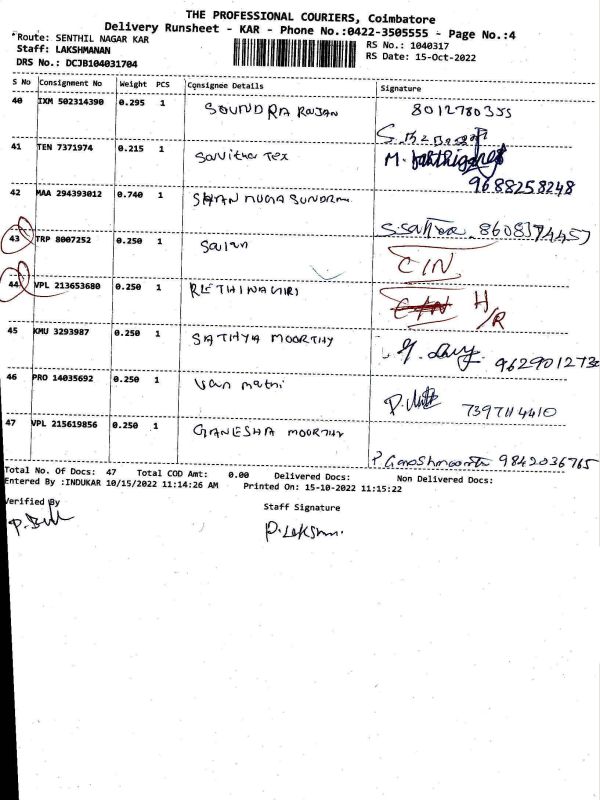 THE PROFESSIONAL COURIERS, Coimbatore
Delivery Runsheet - KAR - Phone No.:0422-3505555 - Page No.:4
Route: SENTHIL NAGAR KAR
RS No.: 1040317
Staff: LAKSHMANAN
RS Date: 15-Oct-2022
DRS No.: DCJB104031704
S No Consignment No Weight PCS Consignee Details Signature
40 IXM 502314390 0.295 1 SOUNDRA RAJAN 8012780355
41 TEN 7371974 0.215 1 Savitha Tex M.
9688258248
42 MAA 294393012 0.740 1 SHAN MUGA SUNDRAM
8608374457
43 TRP 8007252 0.250 1 CIN
44 VPL 213653680 0.250 1 RETHINAGIRI CIN H/R
45 KMU 3293987 0.250 1 SATHYA MOORTHY
962901273
46 PRO 14035692 0.250 1 Van mathi
7397114410
47 VPL 215619856 0.250 1 GANESHA MOORTHY
P. 9842036765
Total No. Of Docs: 47 Total COD Amt: 0.00 Delivered Docs: Non Delivered Docs:
Entered By :INDUKAR 10/15/2022 11:14:26 AM Printed On: 15-10-2022 11:15:22
Verified By
Staff Signature
P. Lakshm.